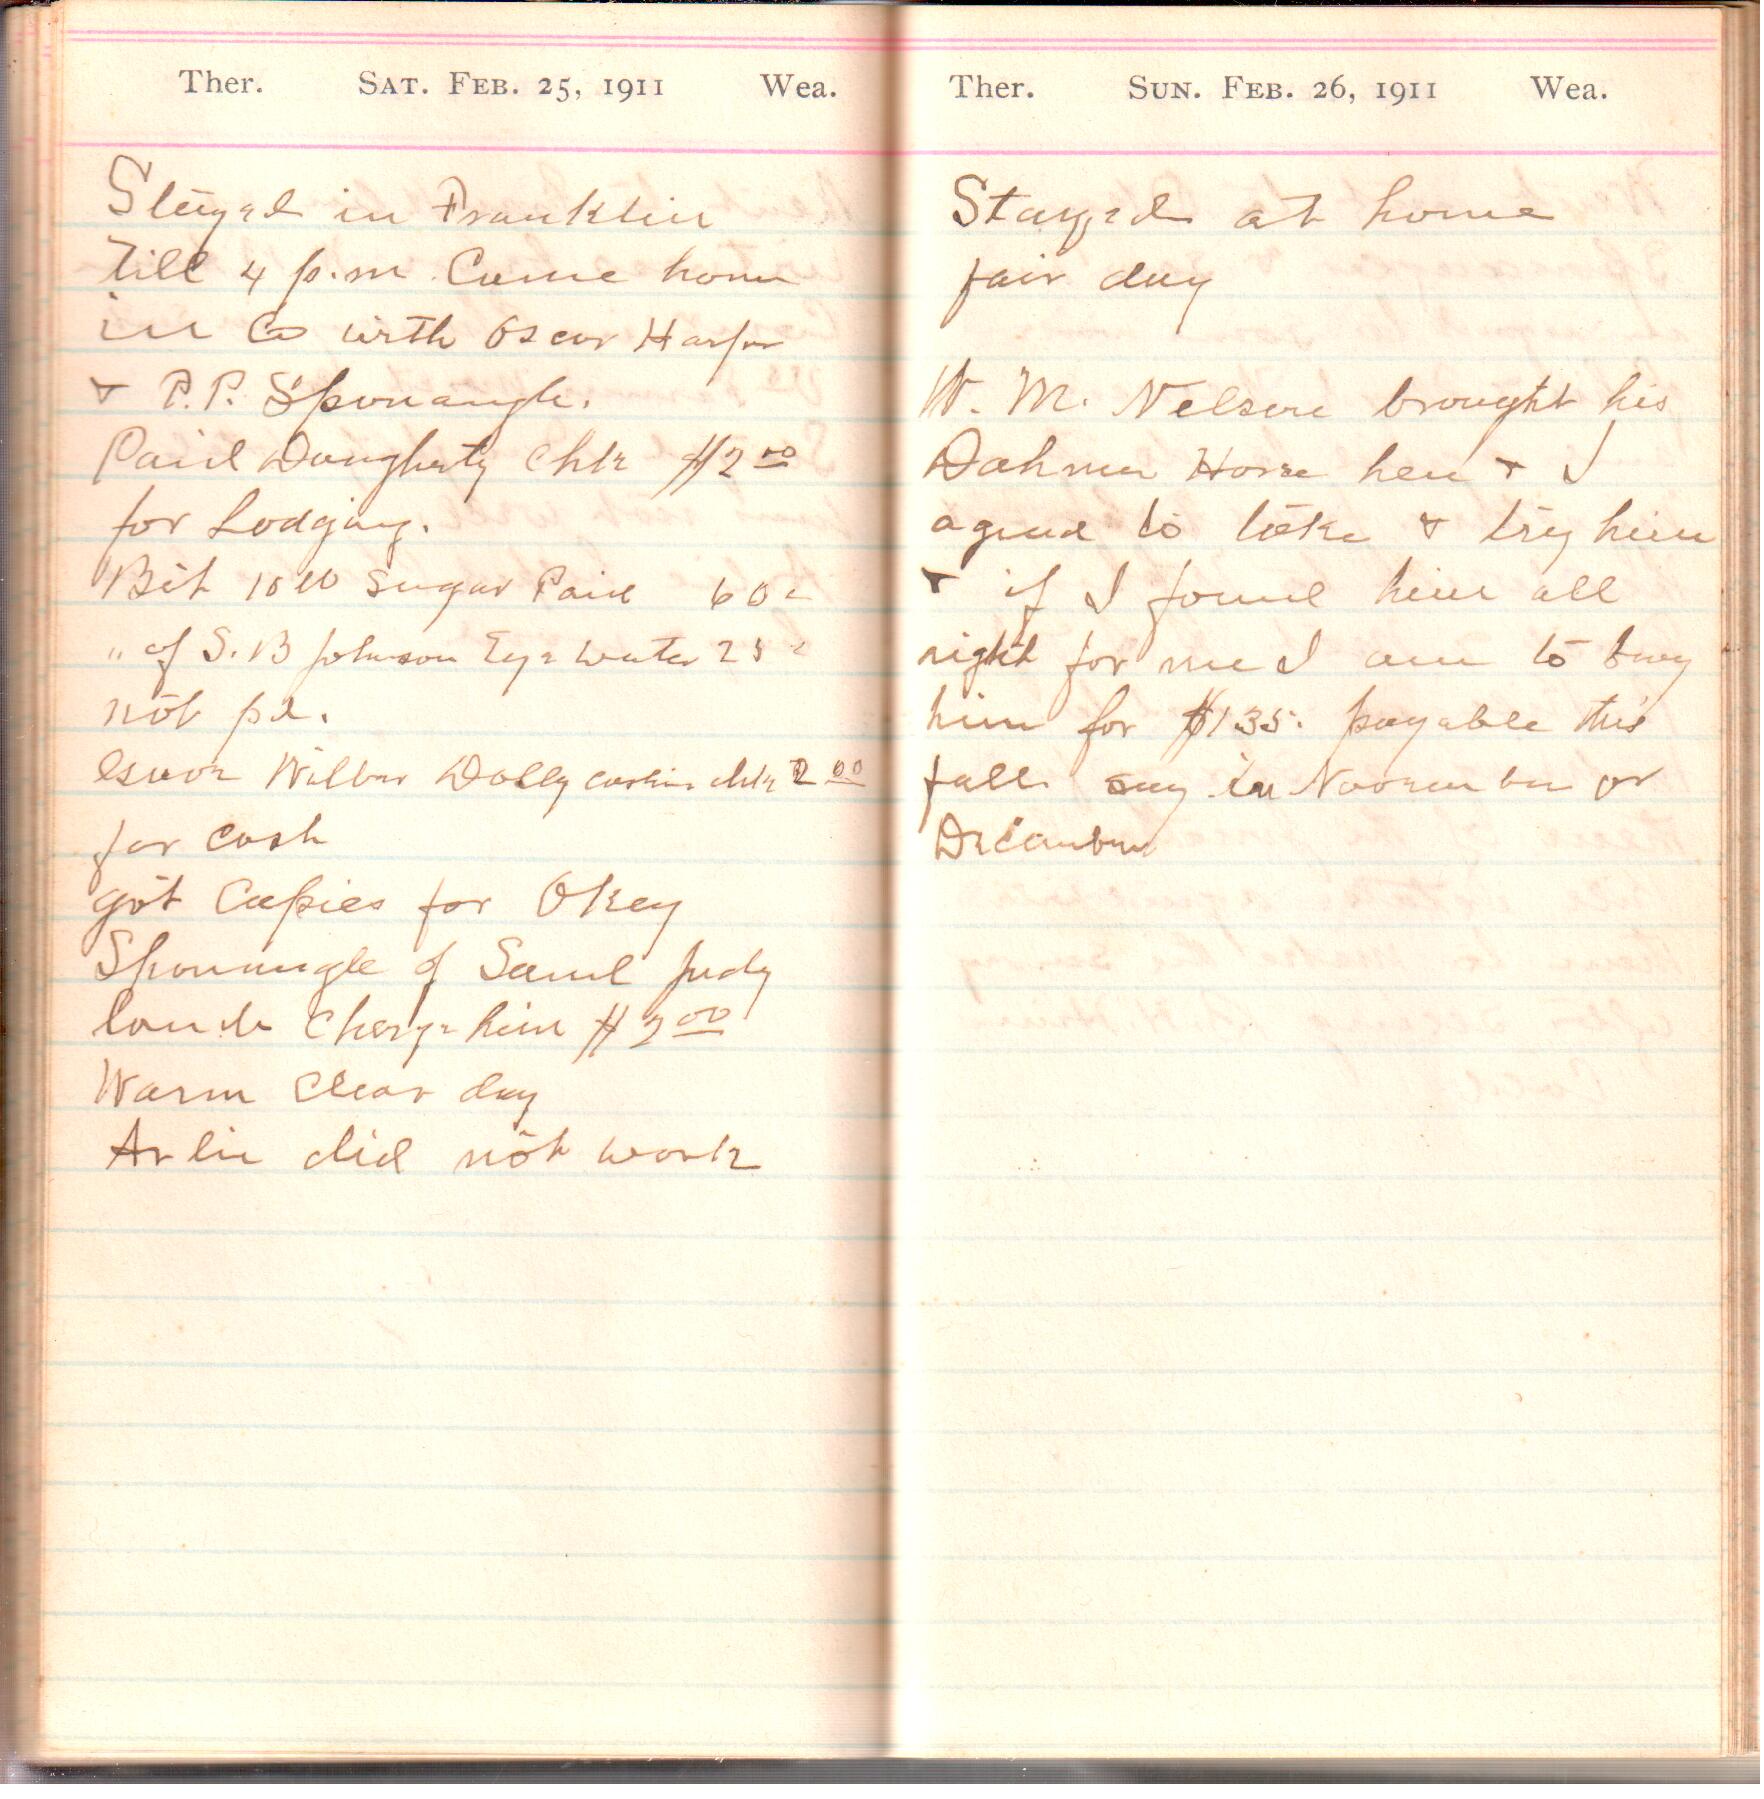 Ther. SAT. FEB. 25, 1911 Wea.
Stayed in Franklin
till 4 p.m Came home
in Co with Oscar Harper
& P.P. Sponaugle.
Paid Daugherty Chk $2.00
for Lodging.
Bot 10 lb sugar Paid 60c
" of S. B Johnson Eye water 25c
not pd.
Wilbur Dolly chk 2.00
for cash
got Copies for Okey
Sponaugle of Saml Judy
lands Charge him $2.00
Warm Clear day
Arlie did not work
Ther. SUN. FEB. 26, 1911 Wea.
Stayed at home
fair day
W. M. Nelson brought his
Dahmer Horse here & I
agreed to take & try him
& if I found him all
right for me I am to buy
him for $135. payable this
fall say in November or
December